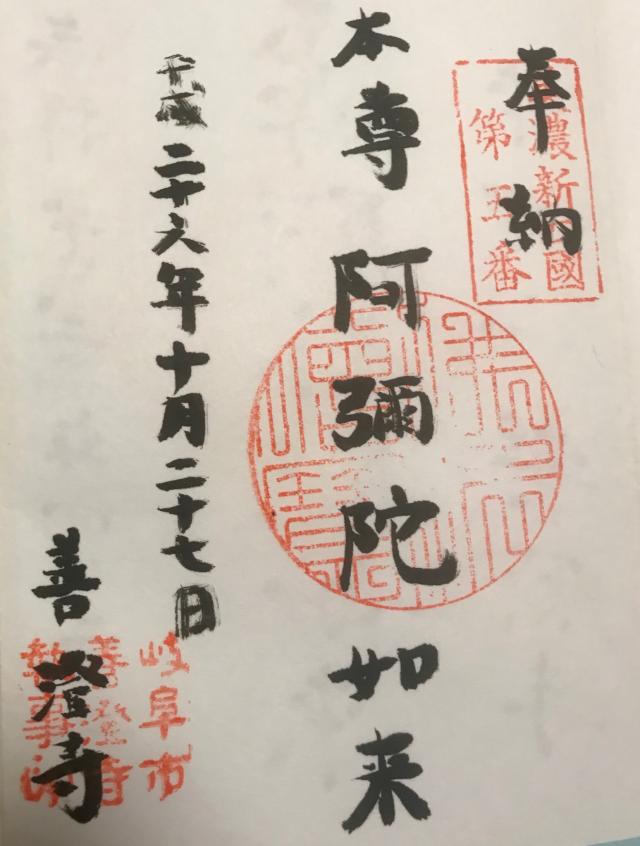 奉納
美濃新四國
第五番
本尊 阿彌陀如来
平成二十六年十月二十七日
善澄寺
岐阜市
善澄寺
執事印